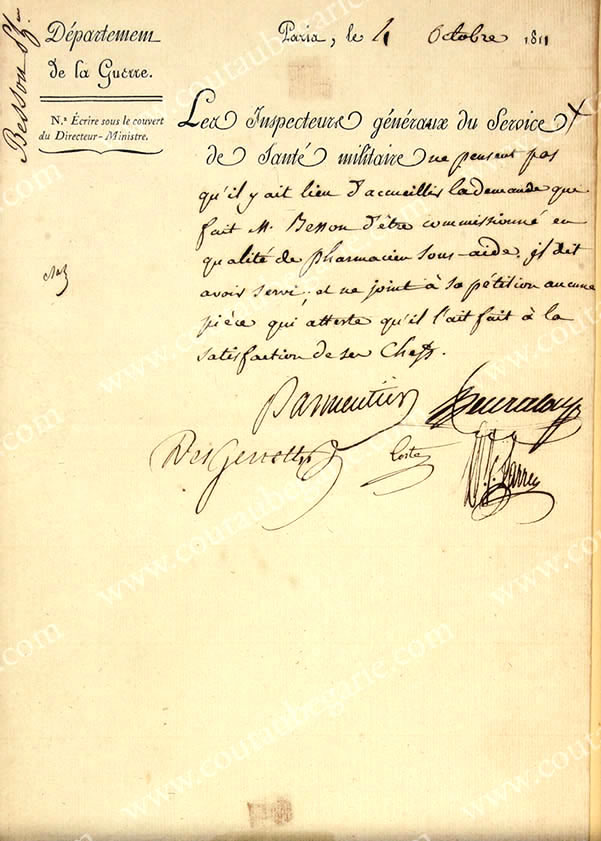 Besson
Département
de la Guerre.
N.ª Écrire sous le couvert
du Directeur-Ministre.
Paris, le 4 Octobre 1811
Les Inspecteurs généraux du Service
de Santé militaire ne pensent pas
qu'il y ait lieu d'accueillir la demande que
fait M. Besson d'être commissionné en
qualité de pharmacien sous-aide, il dit
avoir servi, et ne joint à sa pétition aucune
pièce qui atteste qu'il l'ait fait à la
satisfaction de ses Chefs.
Parmentier Heurteloup
DesGenettes Coste Larrey
www.coutaubegarie.com